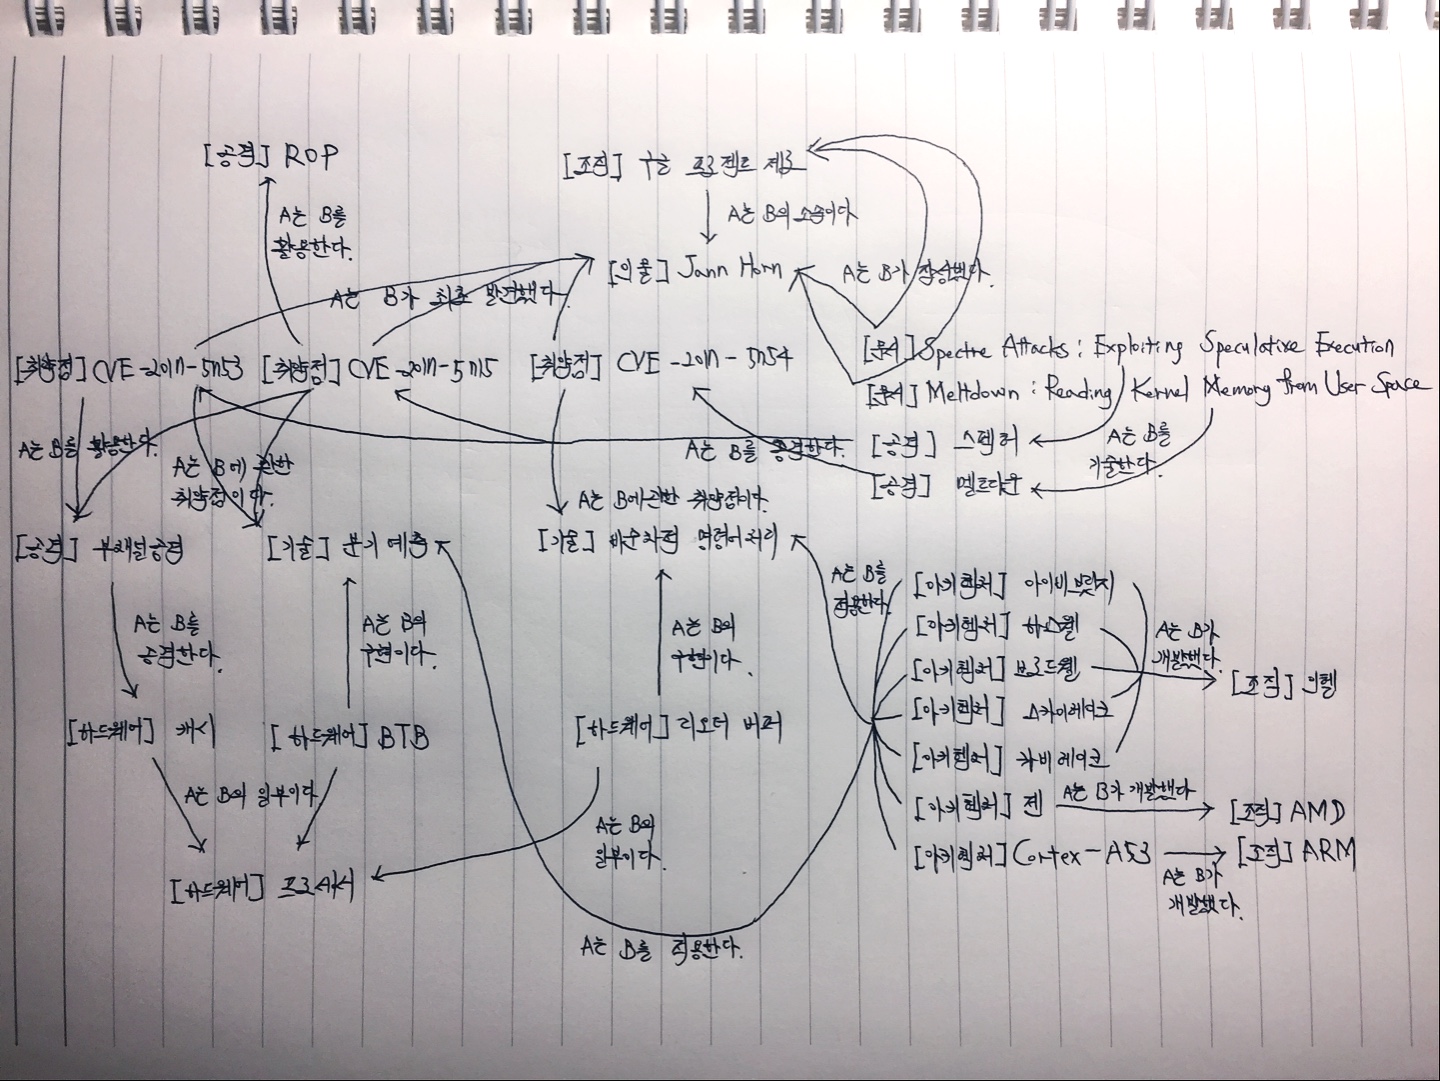 [공격] ROP
[조직] 구글 프로젝트 제로
A는 B를
활용한다.
A는 B의 소속이다.
[인물] Jann Horn
A는 B가 작성했다.
A는 B가 최초 발견했다.
[취약점] CVE-2017-5753
[취약점] CVE-2017-5715
[취약점] CVE-2017-5754
[문서] Spectre Attacks : Exploiting Speculative Execution
[문서] Meltdown : Reading Kernel Memory from User Space
A는 B를 활용한다.
A는 B에 관한
취약점이다.
A는 B를 공격한다.
[공격] 스펙터
[공격] 멜트다운
A는 B를
기술한다.
A는 B에 관한 취약점이다.
[공격] 부채널 공격
[기술] 분기 예측
[기술] 비순차적 명령어 처리
A는 B를
적용한다.
[아키텍처] 아이비브릿지
[아키텍처] 하스웰
[아키텍처] 브로드웰
[아키텍처] 스카이레이크
[아키텍처] 카비레이크
A는 B가
개발했다.
[조직] 인텔
A는 B를
공격한다.
A는 B의
구현이다.
A는 B의
구현이다.
[하드웨어] 캐시
[하드웨어] BTB
[하드웨어] 리오더 버퍼
A는 B의 일부이다.
A는 B의
일부이다.
[아키텍처] 젠
A는 B가 개발했다
[조직] AMD
[아키텍처] Cortex-A53
[조직] ARM
A는 B가
개발했다.
[하드웨어] 프로세서
A는 B를 적용한다.